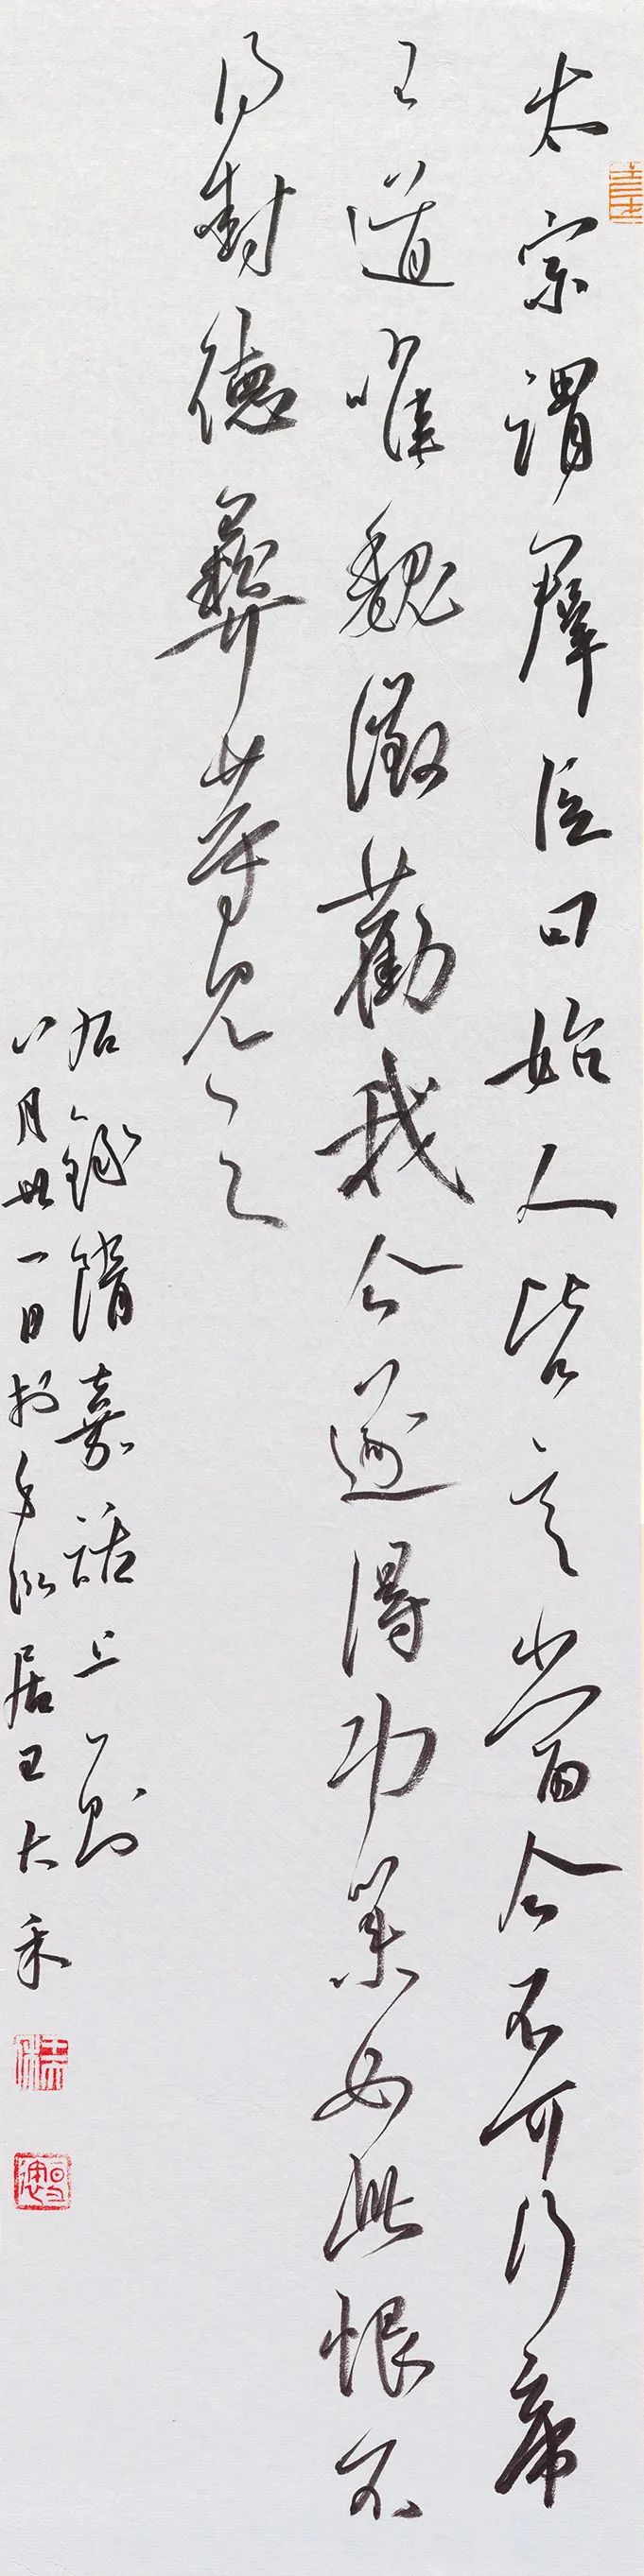 太宗謂羣臣曰始人皆言當今不可行帝
王道唯魏徵勸我今遂得功業如此恨不
得封德彝等見之
右錄隋嘉話上一則
八月一日於居王大禾